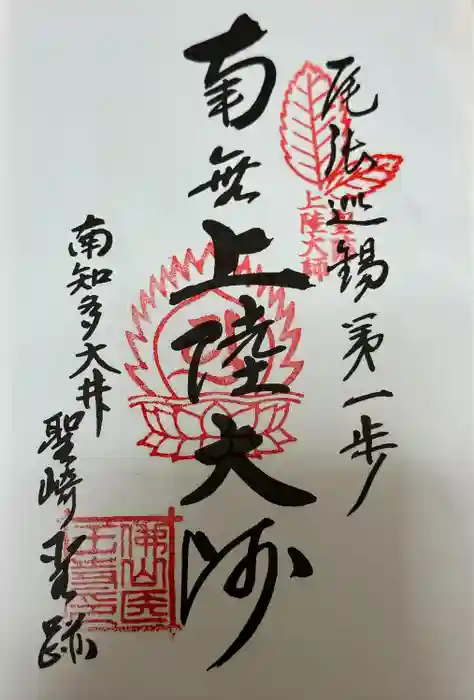 尾張巡錫第一歩
聖崎
上陸大師
南無上陸大師
南知多大井
聖崎聖跡